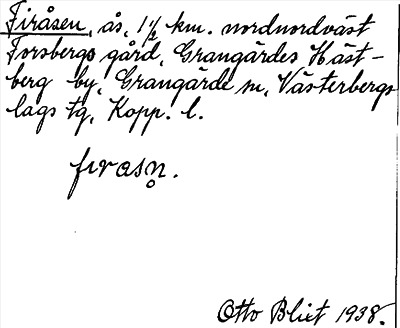 Firåsen, ås, 1½ km. nordnordväst
Forsbergs gård, Grangärdes Häst-
berg by, Grangärde sn, Västerbergs
lags tg, Kopp. l.
firasn̥.
Otto Blixt 1938.